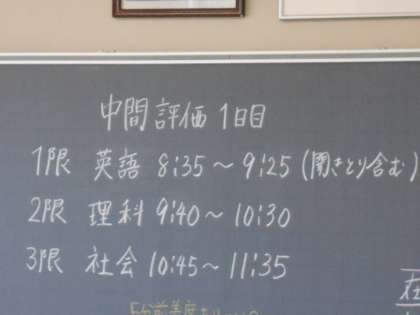 中間評価 1日目
1限 英語 8:35～9:25 (聞きとり含む)
2限 理科 9:40～10:30
3限 社会 10:45～11:35
在